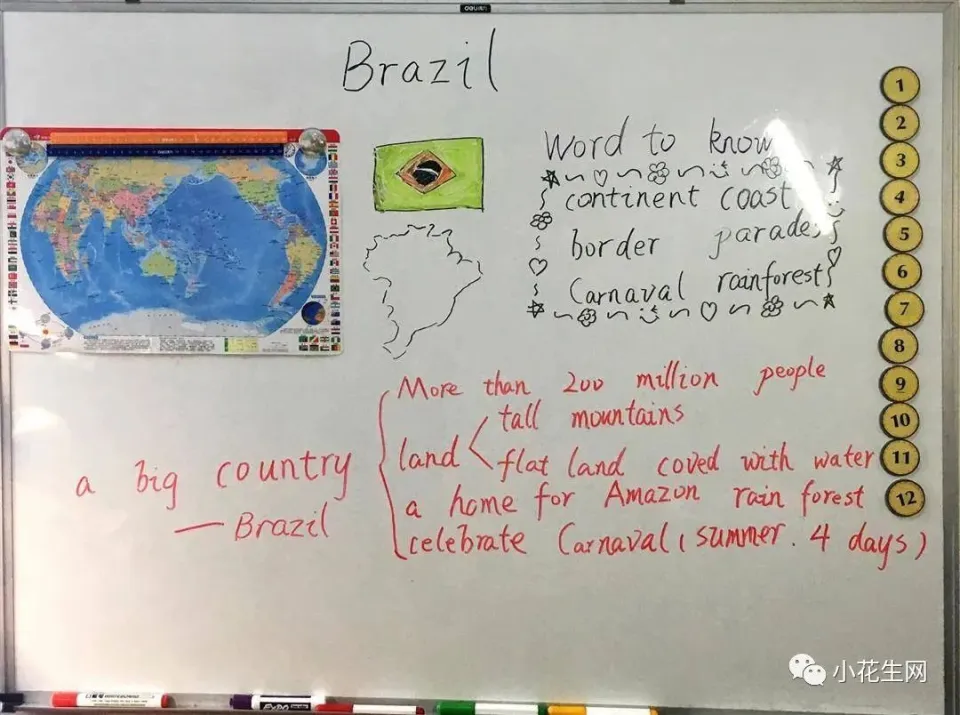 Brazil
Word to know
continent coast
border parades
Carnaval rainforest
More than 200 million people
tall mountains
land
flat land coved with water
a big country
— Brazil
a home for Amazon rain forest
celebrate Carnaval (summer. 4 days)
1
2
3
4
5
6
7
8
9
10
11
12
EXPO
小花生网